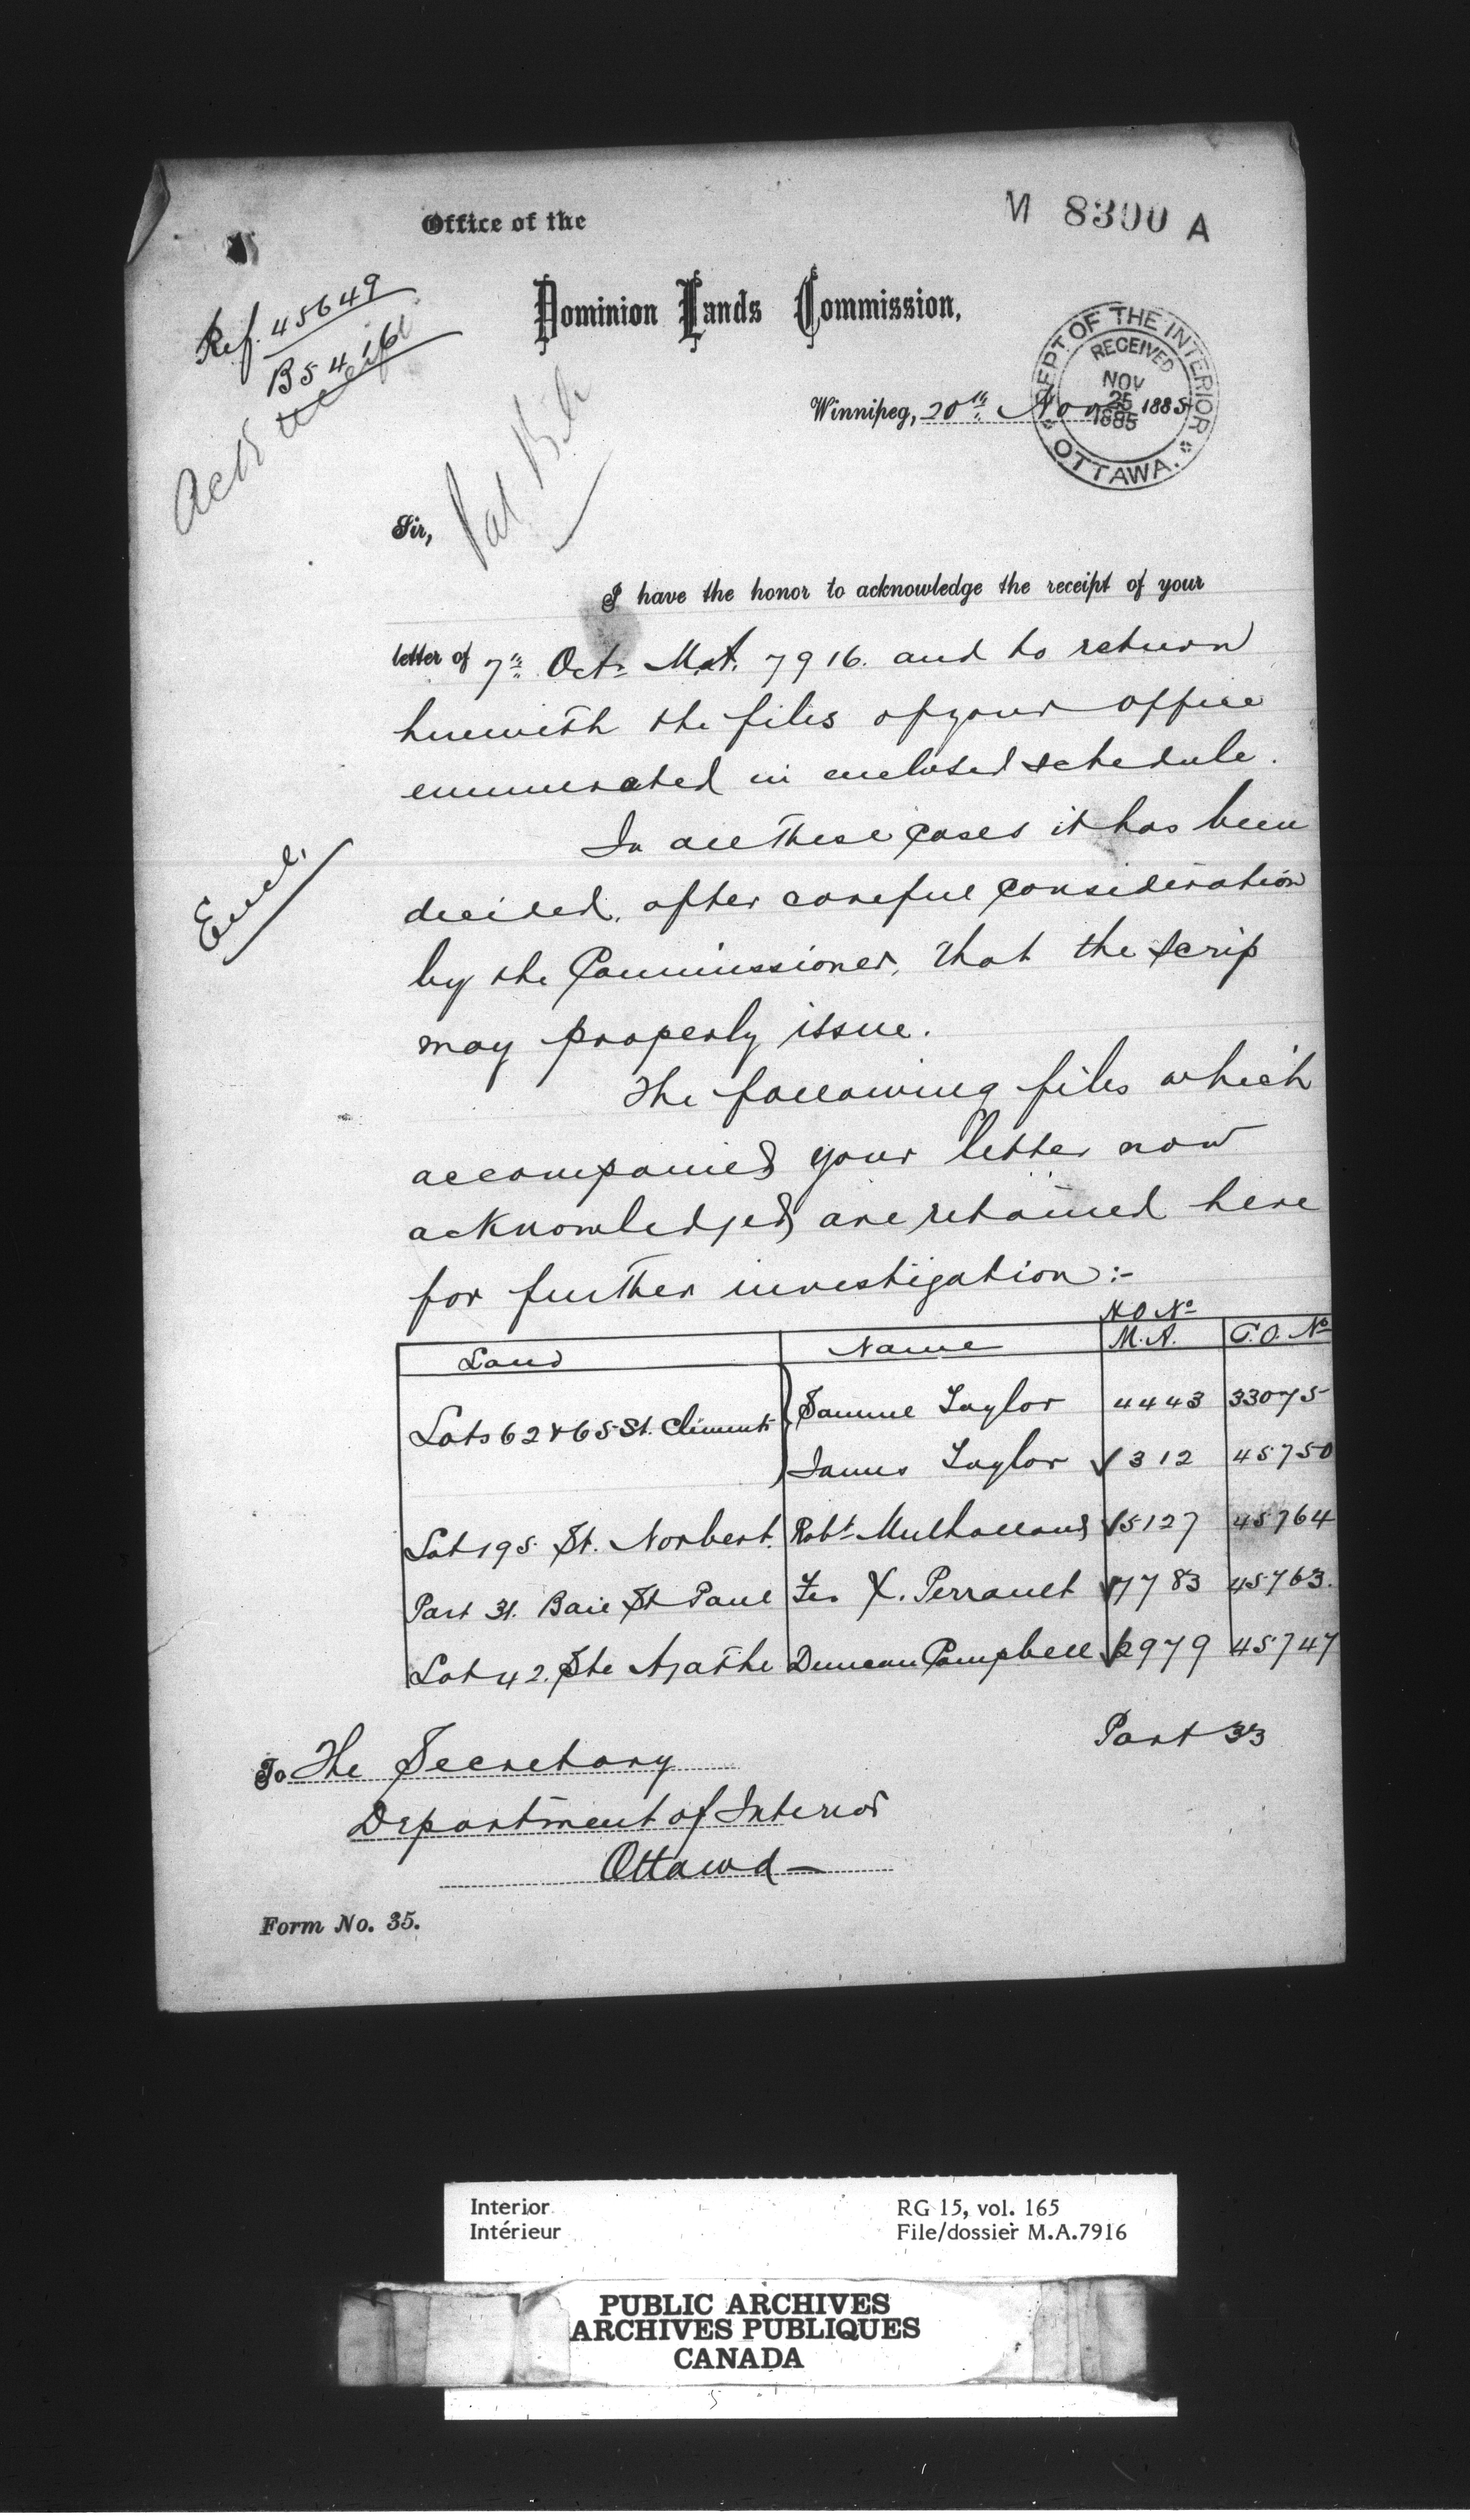 M 8300 A
Office of the
Dominion Lands Commission,
Ref. 45649
B5416
DEPT OF THE INTERIOR
RECEIVED
NOV
25
1885
OTTAWA.
Winnipeg, 20th Nov 1885
Sir,
I have the honor to acknowledge the receipt of your
letter of 7th Octr M.A. 7916. and to return
herewith the files of your office
enumerated in enclosed schedule.
In all these cases it has been
Encl.
decided, after careful consideration
by the Commissioner, that the scrip
may properly issue.
The following files which
accompanied your letter now
acknowledged are retained here
for further investigation:-
Land Name H.O. No M.A. No
Lots 62 & 65 St. Clements Samuel Taylor 4443 33075
James Taylor 312 45750
Lot 195 St. Norbert. Robt Mulholland 5127 45764
Part 31. Baie St Paul Frs X. Perrault 7783 45763.
Lot 42. Ste Agathe Duncan Campbell 2979 45747
Part 33
To The Secretary
Department of Interior
Ottawa
Form No. 35.
Interior RG 15, vol. 165
Intérieur File/dossier M.A.7916
PUBLIC ARCHIVES
ARCHIVES PUBLIQUES
CANADA